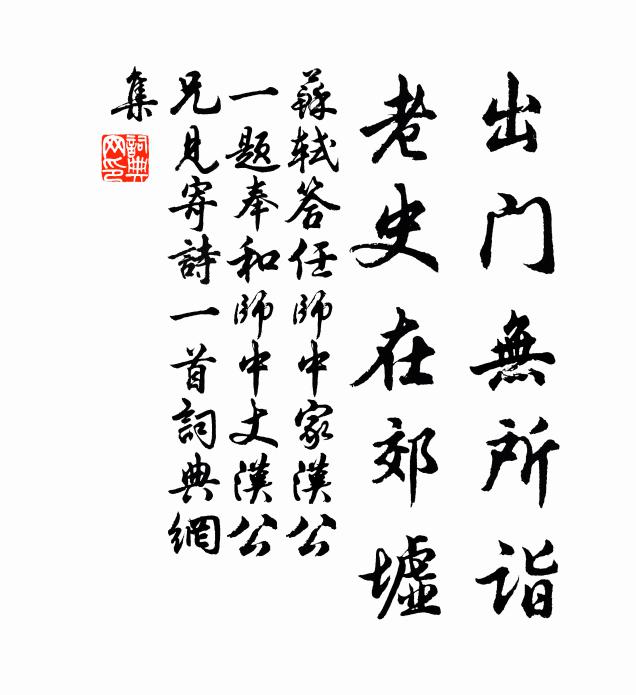 出門無所詣
老史在郊墟
蘇軾答任師中家漢公
一題奉和師中丈漢公
兄見寄詩一首詞典網
集
詞典網印